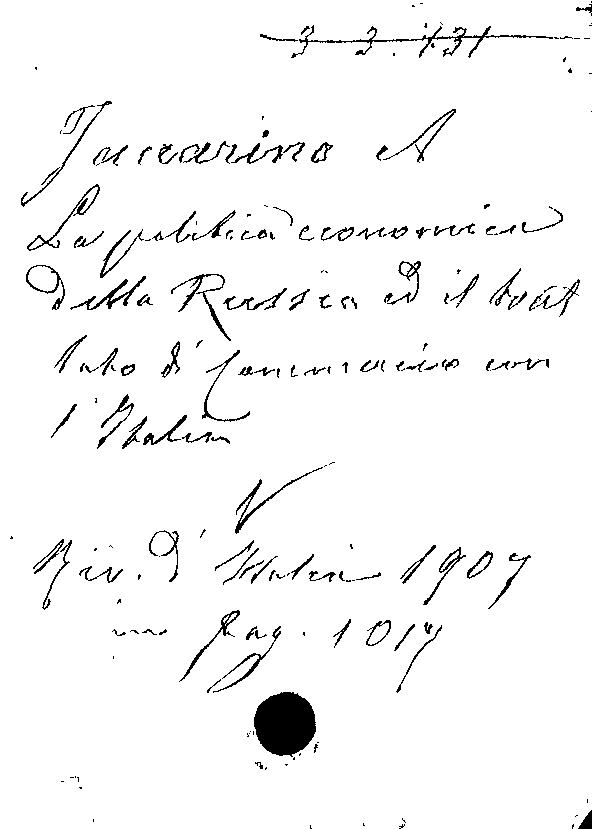 3 3. 131
Jaccarino A
La politica economica
della Russia ed il trat
tato di Commercio con
l'Italia
V
Riv. d'Italia 1907
pag. 1017